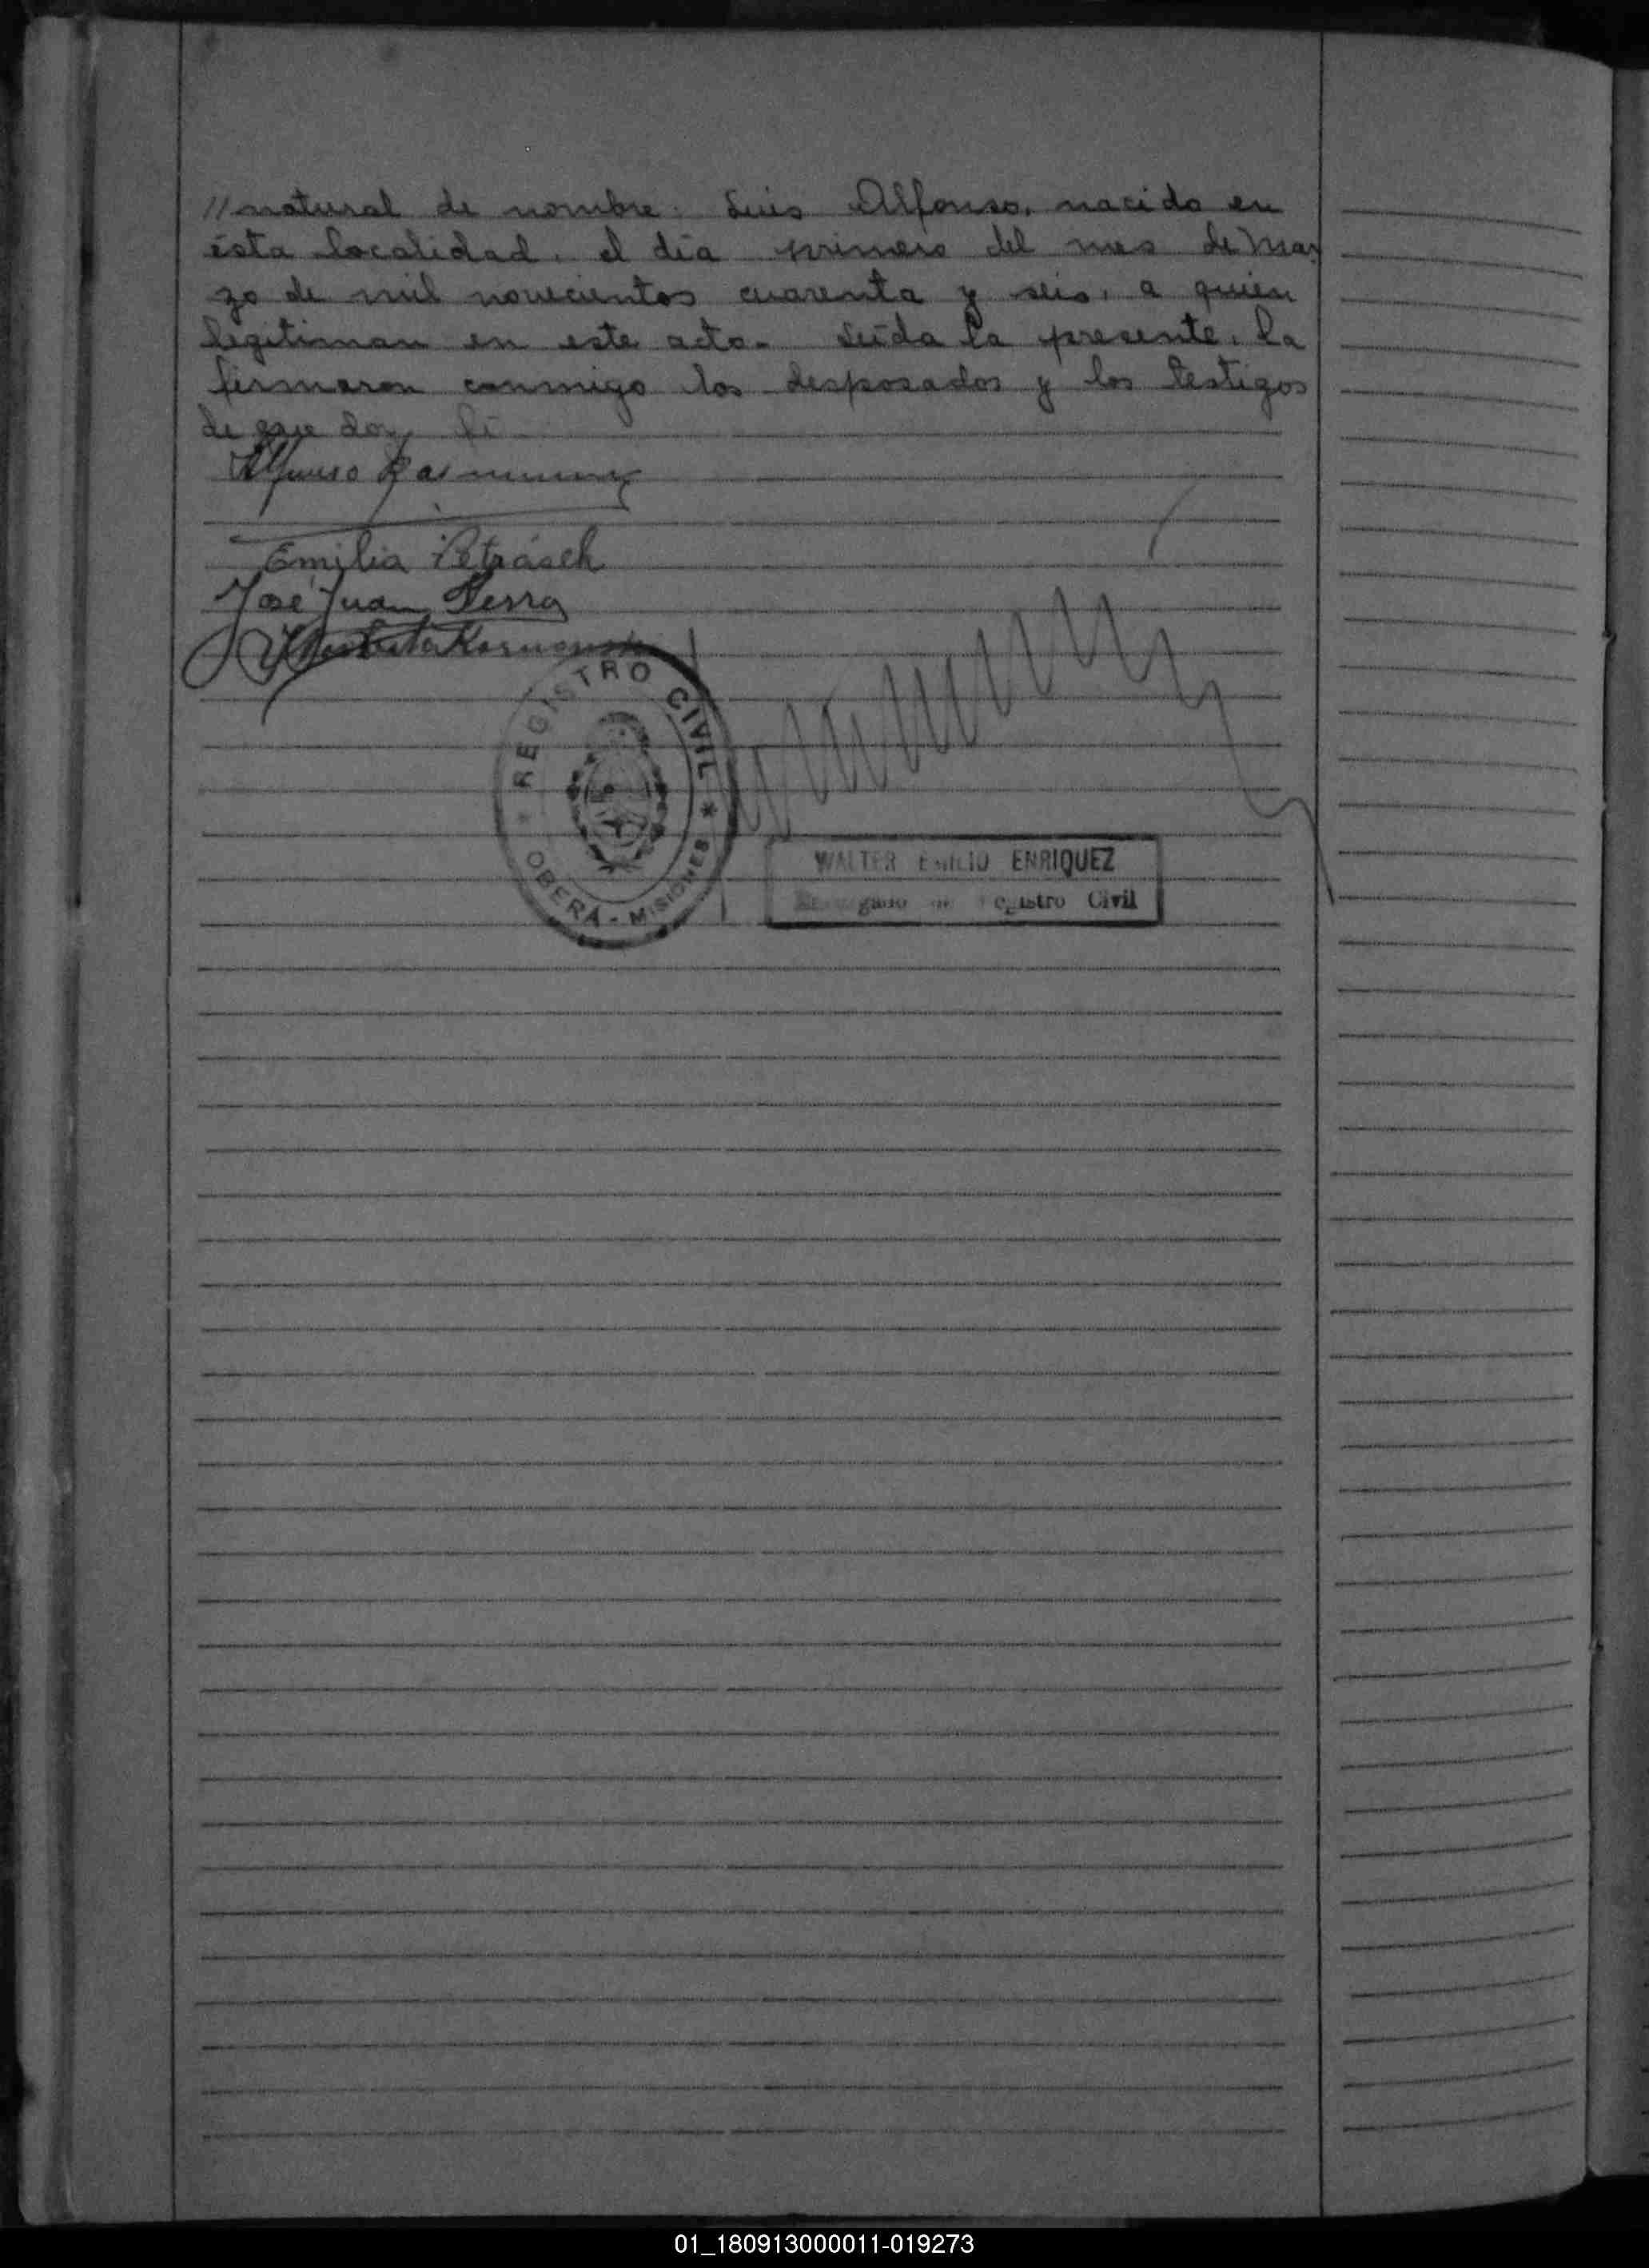 //natural de nombre: Luis Alfonso, nacido en
ésta localidad, el día primero del mes de Mar
zo de mil novecientos cuarenta y seis, a quien
legitiman en este acto.- Leída la presente, la
firmaron conmigo los desposados y los testigos
de que doy fé
Alfonso
Emilia Petrásch
José Juan
REGISTRO CIVIL
* OBERÁ - MISIONES *
WALTER EMILIO ENRIQUEZ
Registro Civil
01_180913000011-019273